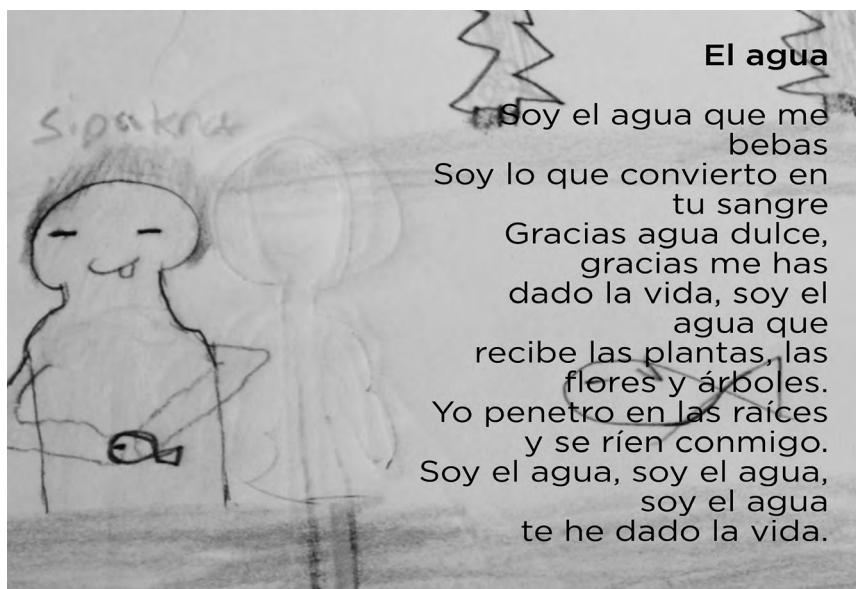 El agua
Sipakna
Soy el agua que me
bebas
Soy lo que convierto en
tu sangre
Gracias agua dulce,
gracias me has
dado la vida, soy el
agua que
recibe las plantas, las
flores y árboles.
Yo penetro en las raíces
y se ríen conmigo.
Soy el agua, soy el agua,
soy el agua
te he dado la vida.